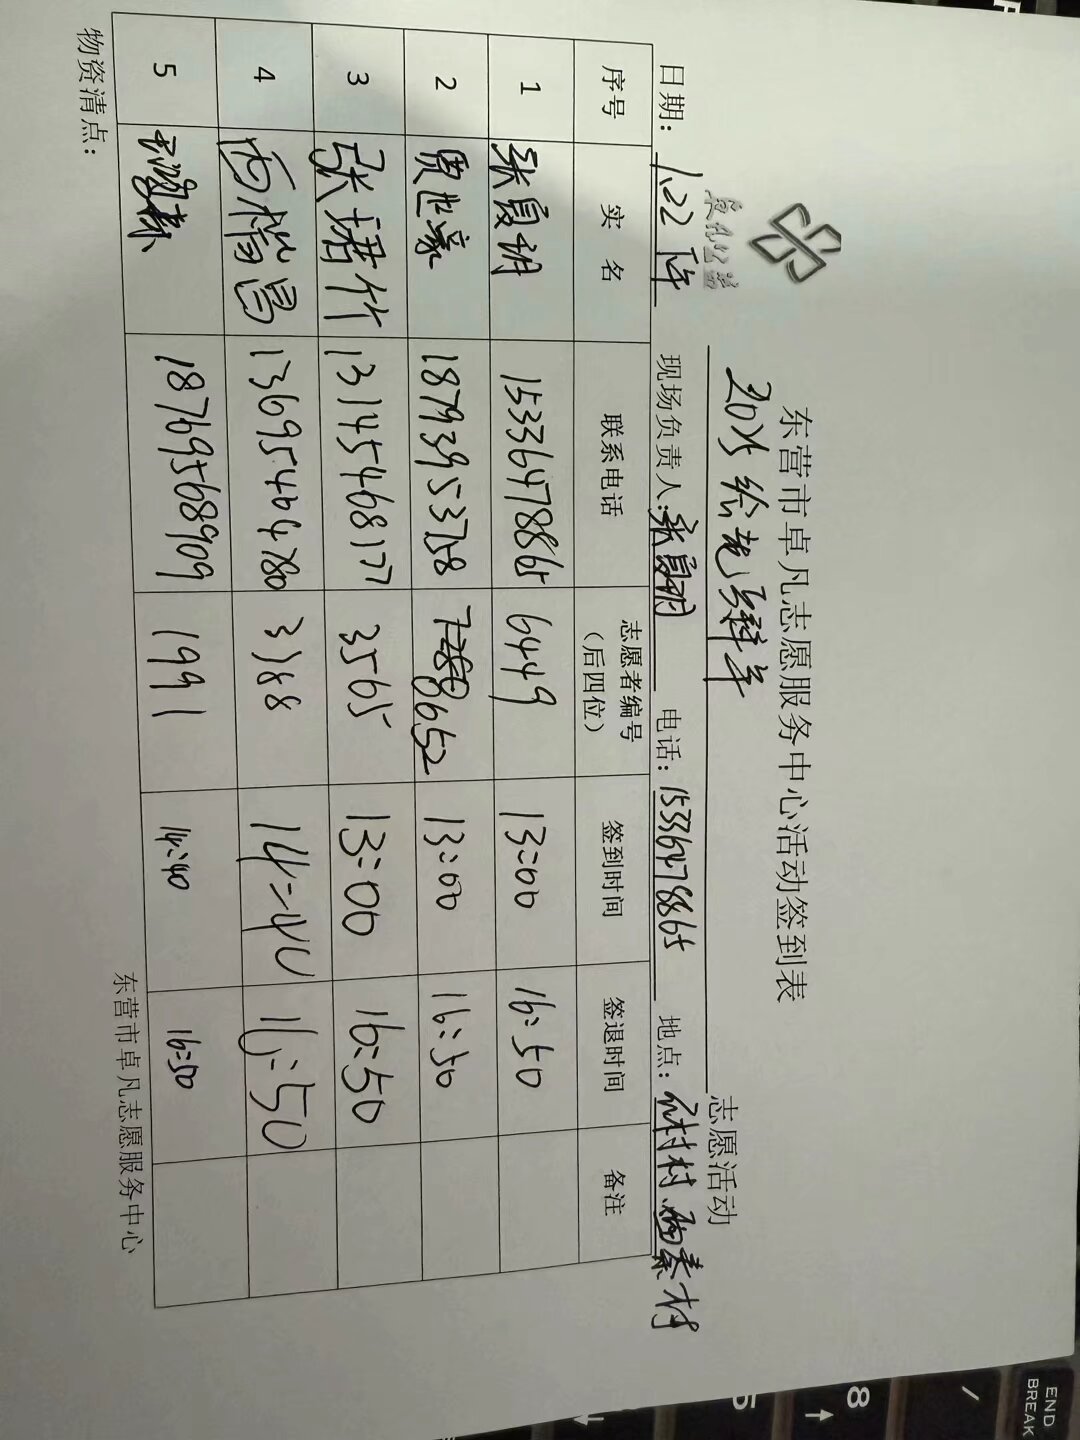 东营市卓凡志愿服务中心活动签到表
卓凡公益
志愿活动
日期: 1.22 下午 现场负责人: 张夏明 电话: 15336478865 地点:
序号 实 名 联系电话 志愿者编号(后四位) 签到时间 签退时间 备注
1 张夏明 15336478865 6449 13:00 16:50
2 贾世豪 18793953758 0652 13:00 16:50
3 张珺竹 13145468177 3565 13:00 16:50
4 13695464780 3188 14:40 16:50
5 18769568909 1991 14:40 16:50
物资清点:
东营市卓凡志愿服务中心
END
BREAK
/
8
5